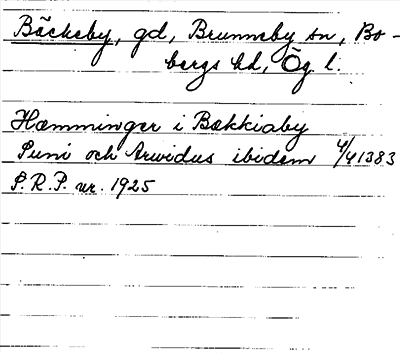 Bäckeby, gd, Brunneby sn, Bo-
bergs hd, Ög l.
Hæmminger i Bækkiaby
Puni och Arvidus ibidem 4/4 1383
P.R.P. nr. 1925